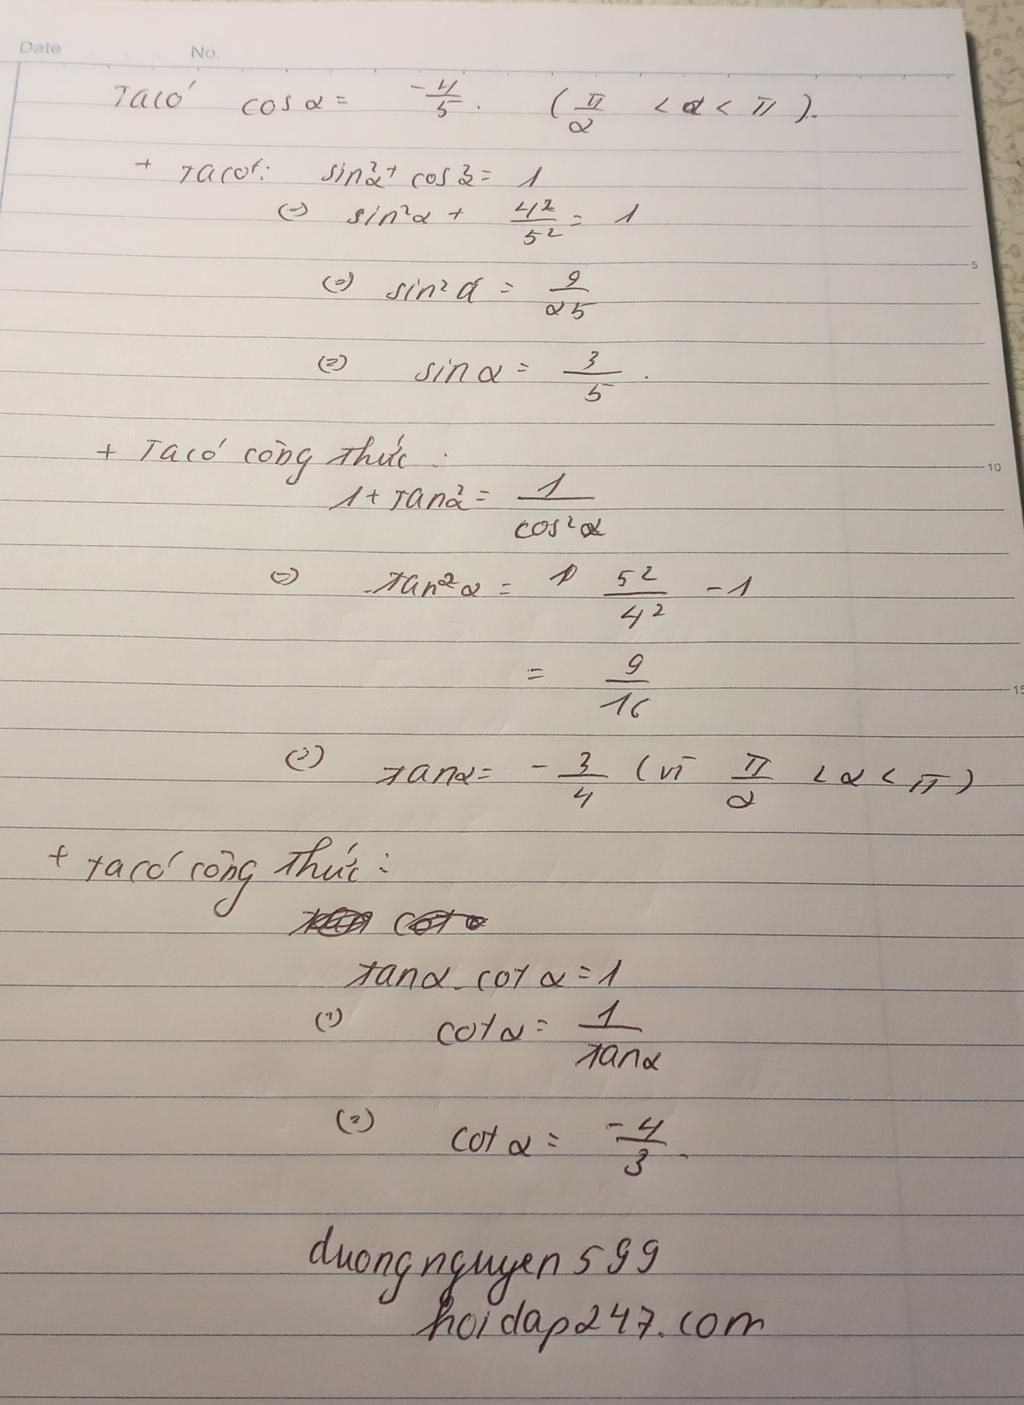 Date No.
Ta có cosα = -4/5. (π/2 < α < π).
+ Ta có: sin²α + cos²α = 1
(=) sin²α + 4²/5² = 1
5
(=) sin²α = 9/25
(=) sinα = 3/5.
+ Ta có công thức :
10
1 + tan²α = 1/cos²α
(=) tan²α = 5²/4² - 1
= 9/16
15
(=) tanα = -3/4 (vì π/2 < α < π)
+ Ta có công thức :
tanα. cotα = 1
(=) cotα = 1/tanα
(=) cotα = -4/3.
duongnguyen599
hoidap247.com